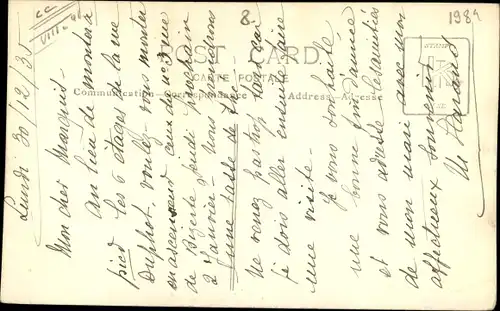 Lundi 30/12/35
Mon cher Marquis -
Au lieu de monter à
pied les 6 étages de la rue
Duphot - voulez-vous monter
en ascenseur ceux du n° 3
de Bizerte, jeudi prochain
2 Janvier - Nous prendrons
une tasse de thé -
Ne venez pas trop tard, car
je dois aller ensuite faire
une visite -
Je vous souhaite
une bonne fin d'année
et vous adresse
de mon mari avec mon
affectueux souvenir
POST CARD
CARTE POSTALE
Communication - Correspondance
Address - Adresse
STAMP
8.
198